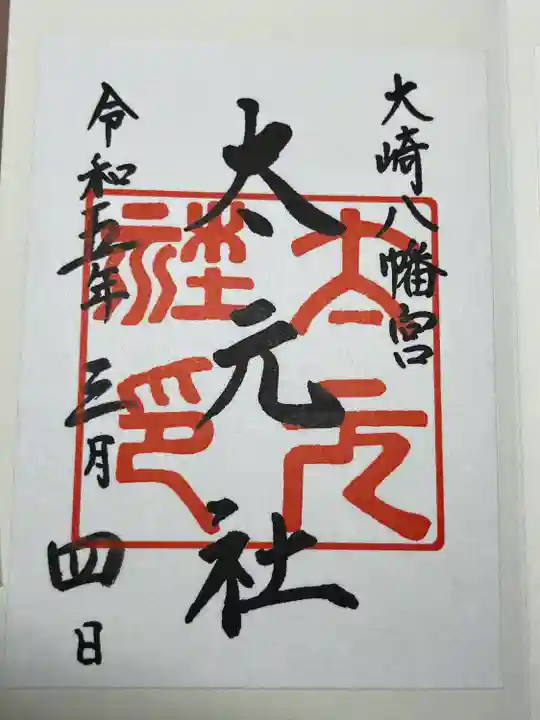 大崎八幡宮
太元社
令和五年三月四日
太元社印